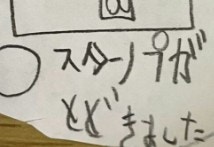 スタンプが
とどきました